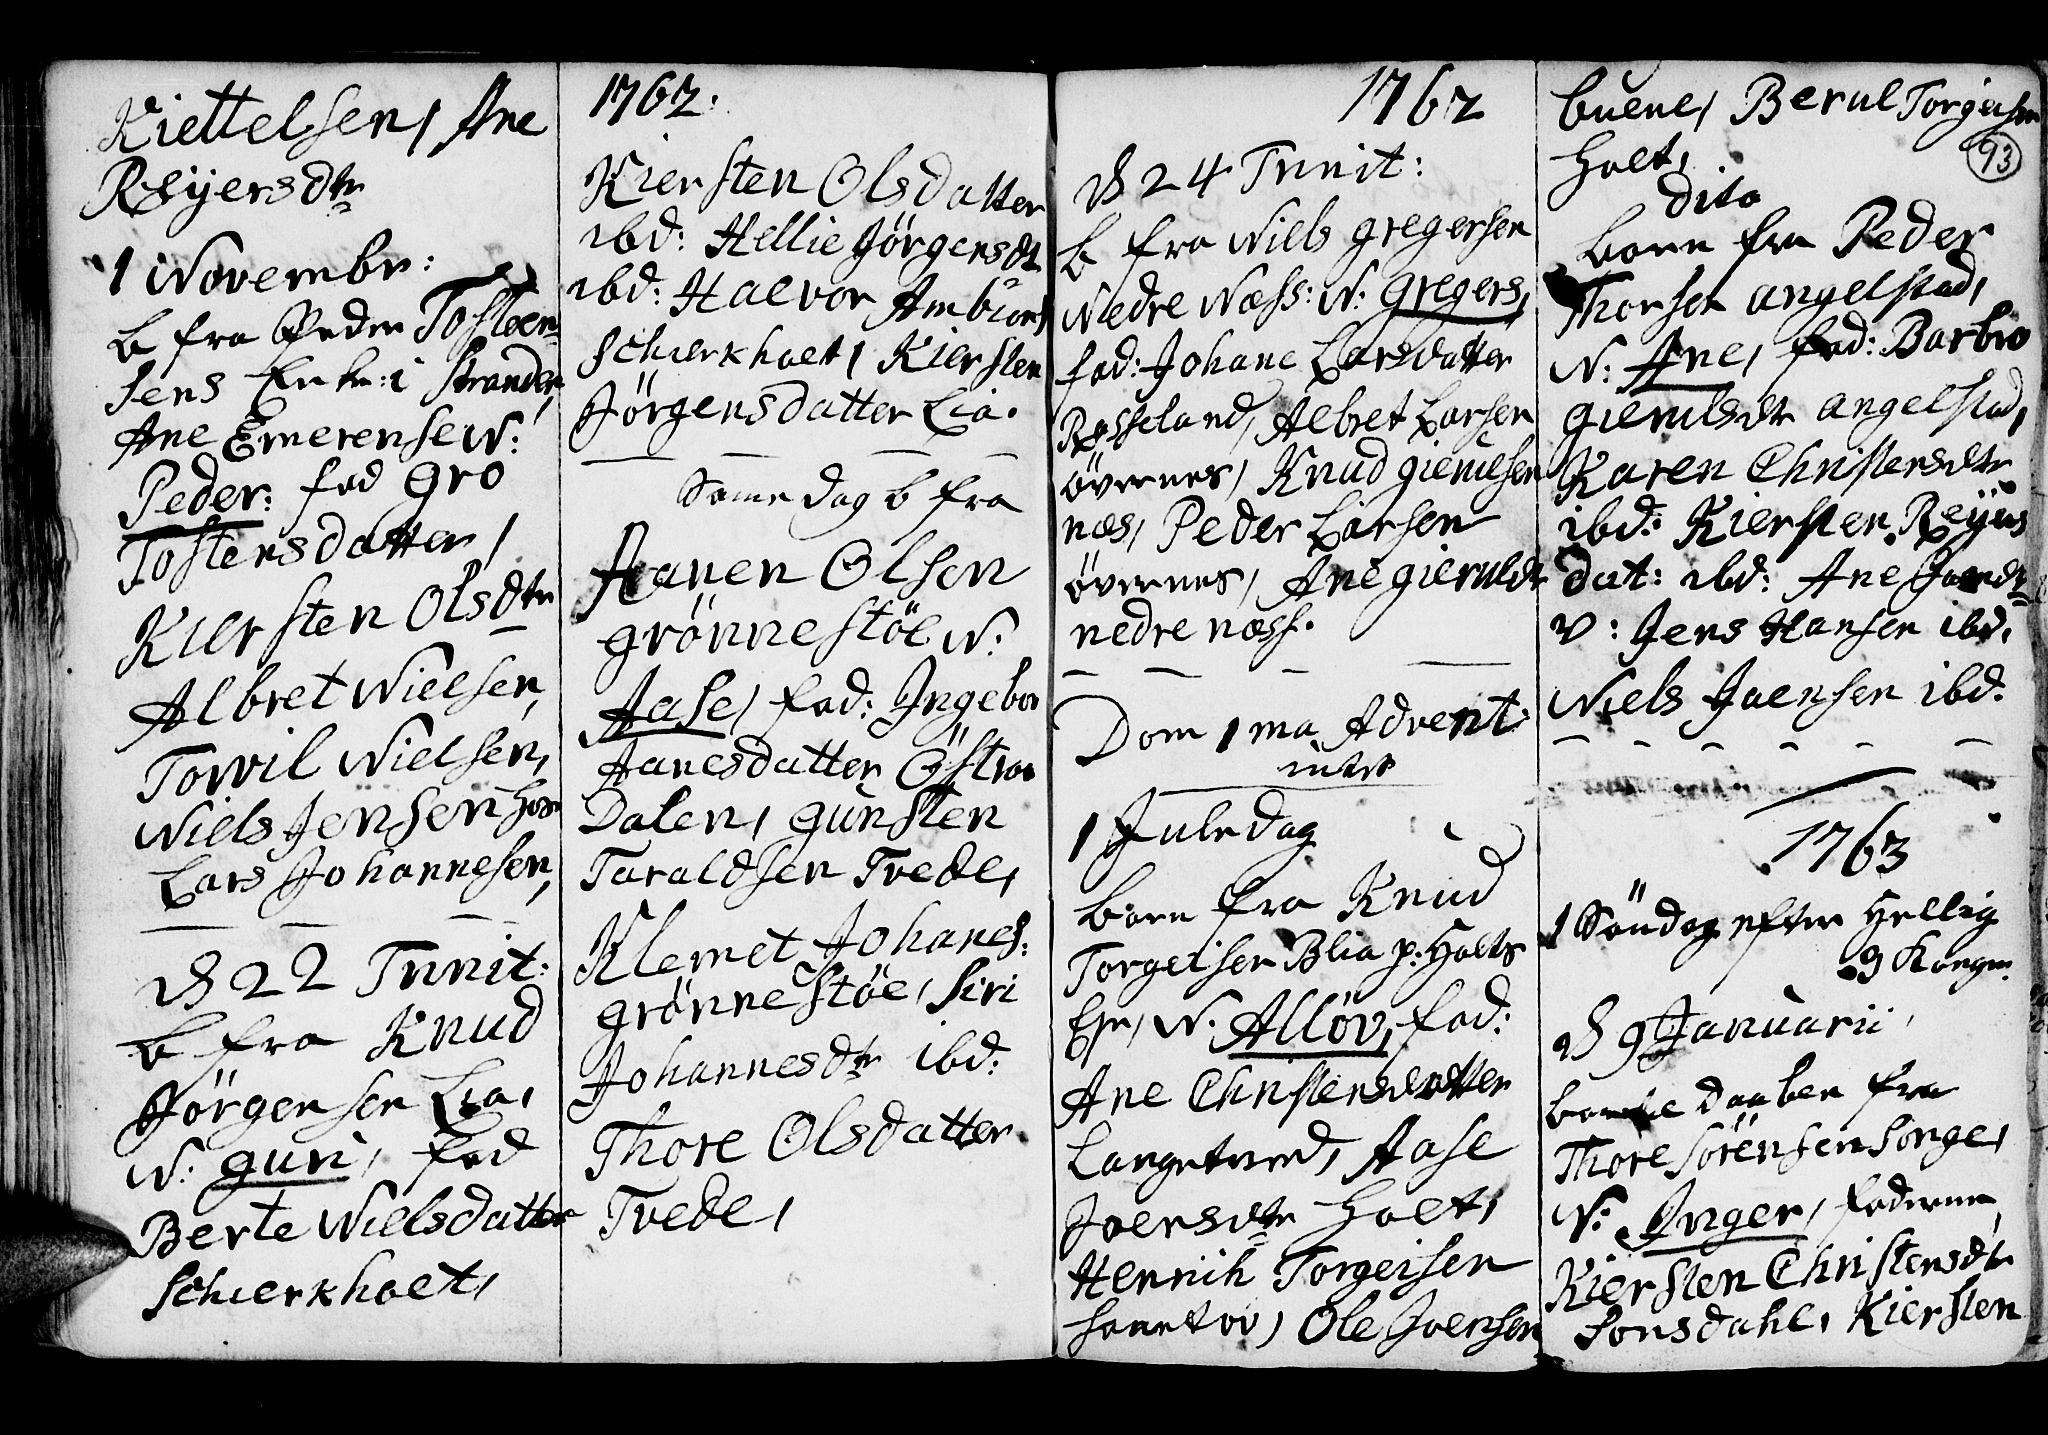 Kiettelsen, Ane
Reÿersdtr
1 Novembr:
b fra Peder Tosteen
sens Enke: i Stranden,
Ane Emerense N:
Peder: fad Gro
Tostensdatter,
Kiersten Olsdtr
Albret Nielsen,
Torvil Nielsen,
Niels Jensen
Lars Johannesen,
D 22 Trinit:
b fra Knud
Jörgensen Lia,
N: Guri, fad
Berte Nielsdatter
Schierkholt,
1762.
Kiersten Olsdatter
ibd: Hellie Jörgensdt
ibd: Halvor Ambiörs
Schierkholt, Kiersten
Jörgensdatter Lia.
Same dag b fra
Aanen Olsen
Grönnestöl N:
Aase, fad: Ingebor
Aanesdatter Östra
Dalen, Gunsten
Taraldsen Trede,
Klemet Johanes:
Grönnestöl, Siri
Johannesdtr ibd:
Thore Olsdatter
Trede,
1762
D 24 Trinit:
b fra Niels Gregersen
Nedre Næss: N: Gregers,
fad: Johane Larsdatter
Rosseland, Albret Larsen
övernes, Knud Gierulsen
næs, Peder Larsen
övernes, Ane Gieruldtr
nedre næss.
Dom 1 ma Advent:
intet
1 Juledag
barn fra Knud
Torgeisen Blia p: Holts
Eje, N: Allöv, fad:
Ane Christensdatter
Langetved, Aase
Joensdtr Holt,
Henrik Torgeisen
Ole Joensen
buene, Berul Torgiesen
Holt,
93
dito
barn fra Peder
Thorsen Angelstad,
N: Ane, fad: Barbro
Gierulsdtr Angelstad,
Karen Christensdtr
ibd: Kiersten Reÿers
dat: ibd: Ane
v: Jens Hansen ibd.
Niels Joensen ibd.
1763
1 Söndag efter Hellig
3 Konger
D 9 Januarii,
daaben fra
Thore Sörensen Songe,
N: Inger, fadderne
Kiersten Christensdtr
Sonsdahl, Kiersten